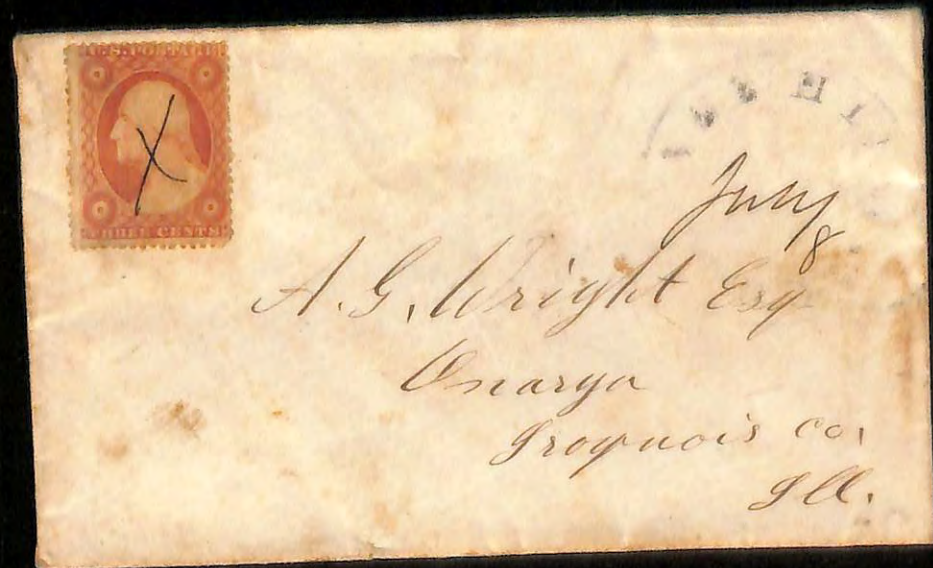 U.S. POSTAGE
X
THREE CENTS
July
8
A. G. Wright Esq
Onarga
Iroquois Co.
Ill.